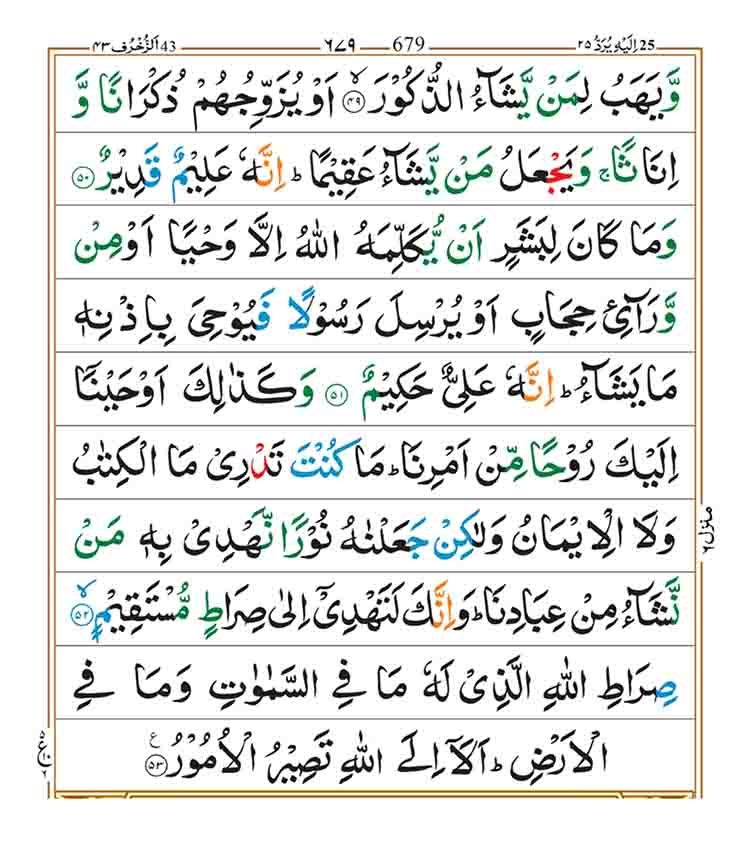 اِلَیْهِ یُرَدُّ ٢٥ 25 679 ٦٧٩ اَلزُّخْرُف ٤٣ 43
وَّیَهَبُ لِمَنْ یَّشَآءُ الذُّكُوْرَ ۙ‏﴿۴۹﴾ اَوْ یُزَوِّجُهُمْ ذُكْرَانًا وَّ
اِنَاثًا ۚ وَیَجْعَلُ مَنْ یَّشَآءُ عَقِیْمًا ؕ اِنَّهٗ عَلِیْمٌ قَدِیْرٌ ﴿۵۰﴾
وَمَا كَانَ لِبَشَرٍ اَنْ یُّكَلِّمَهُ اللّٰهُ اِلَّا وَحْیًا اَوْ مِنْ
وَّرَآئِ حِجَابٍ اَوْ یُرْسِلَ رَسُوْلًا فَیُوْحِیَ بِاِذْنِهٖ
مَا یَشَآءُ ؕ اِنَّهٗ عَلِیٌّ حَكِیْمٌ ﴿۵۱﴾ وَكَذٰلِكَ اَوْحَیْنَاۤ
اِلَیْكَ رُوْحًا مِّنْ اَمْرِنَا ؕ مَا كُنْتَ تَدْرِیْ مَا الْكِتٰبُ
وَلَا الْاِیْمَانُ وَلٰكِنْ جَعَلْنٰهُ نُوْرًا نَّهْدِیْ بِهٖ مَنْ
نَّشَآءُ مِنْ عِبَادِنَا ؕ وَاِنَّكَ لَتَهْدِیْۤ اِلٰی صِرَاطٍ مُّسْتَقِیْمٍ ۙ﴿۵۲﴾
صِرَاطِ اللّٰهِ الَّذِیْ لَهٗ مَا فِی السَّمٰوٰتِ وَمَا فِی
الْاَرْضِ ؕ اَلَاۤ اِلَی اللّٰهِ تَصِیْرُ الْاُمُوْرُ ﴿۵۳﴾ ع
منزل ٦